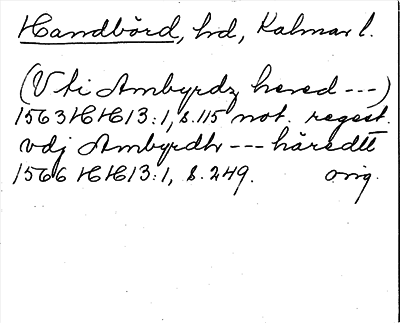 Handbörd, hd, Kalmar l.
(Vti Ambyrdz hered ---)
1563 HH 13:1, s. 115 not. regest.
vdj Ambyrdh --- häredtt
1566 HH 13:1, s. 249. orig.